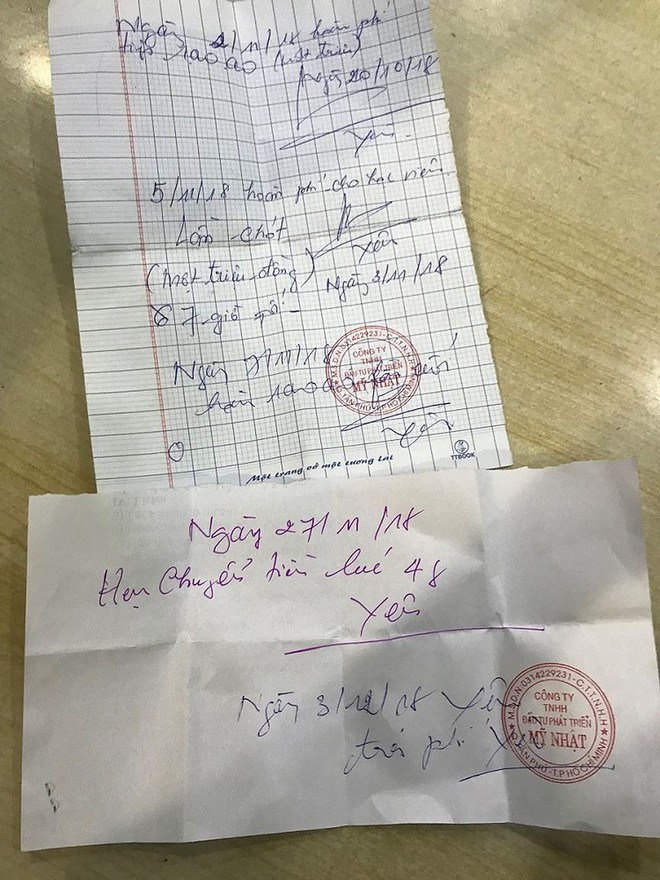 Ngày 2/11/18 hoàn phí
(một triệu)
Ngày 20/10/18
Yến
5/11/18 hoàn phí cho học viên
Lần chót
(một triệu đồng)
Yến
Ngày 3/11/18
7 giờ tối
Ngày 7/11/18
hoàn
Yến
M.S.D.N:0314229231-C.T.T.N.H.H
CÔNG TY
TNHH
ĐẦU TƯ PHÁT TRIỂN
MỸ NHẬT
Q.TÂN PHÚ-T.P HỒ CHÍ MINH
Một trang vở một tương lai
TTBOOK
Ngày 27/11/18
Hẹn chuyển tiền lúc 4g
Yến
Ngày 3/12/18 Yến
trả phí
M.S.D.N:0314229231-C.T.T.N.H.H
CÔNG TY
TNHH
ĐẦU TƯ PHÁT TRIỂN
MỸ NHẬT
Q.TÂN PHÚ-T.P HỒ CHÍ MINH